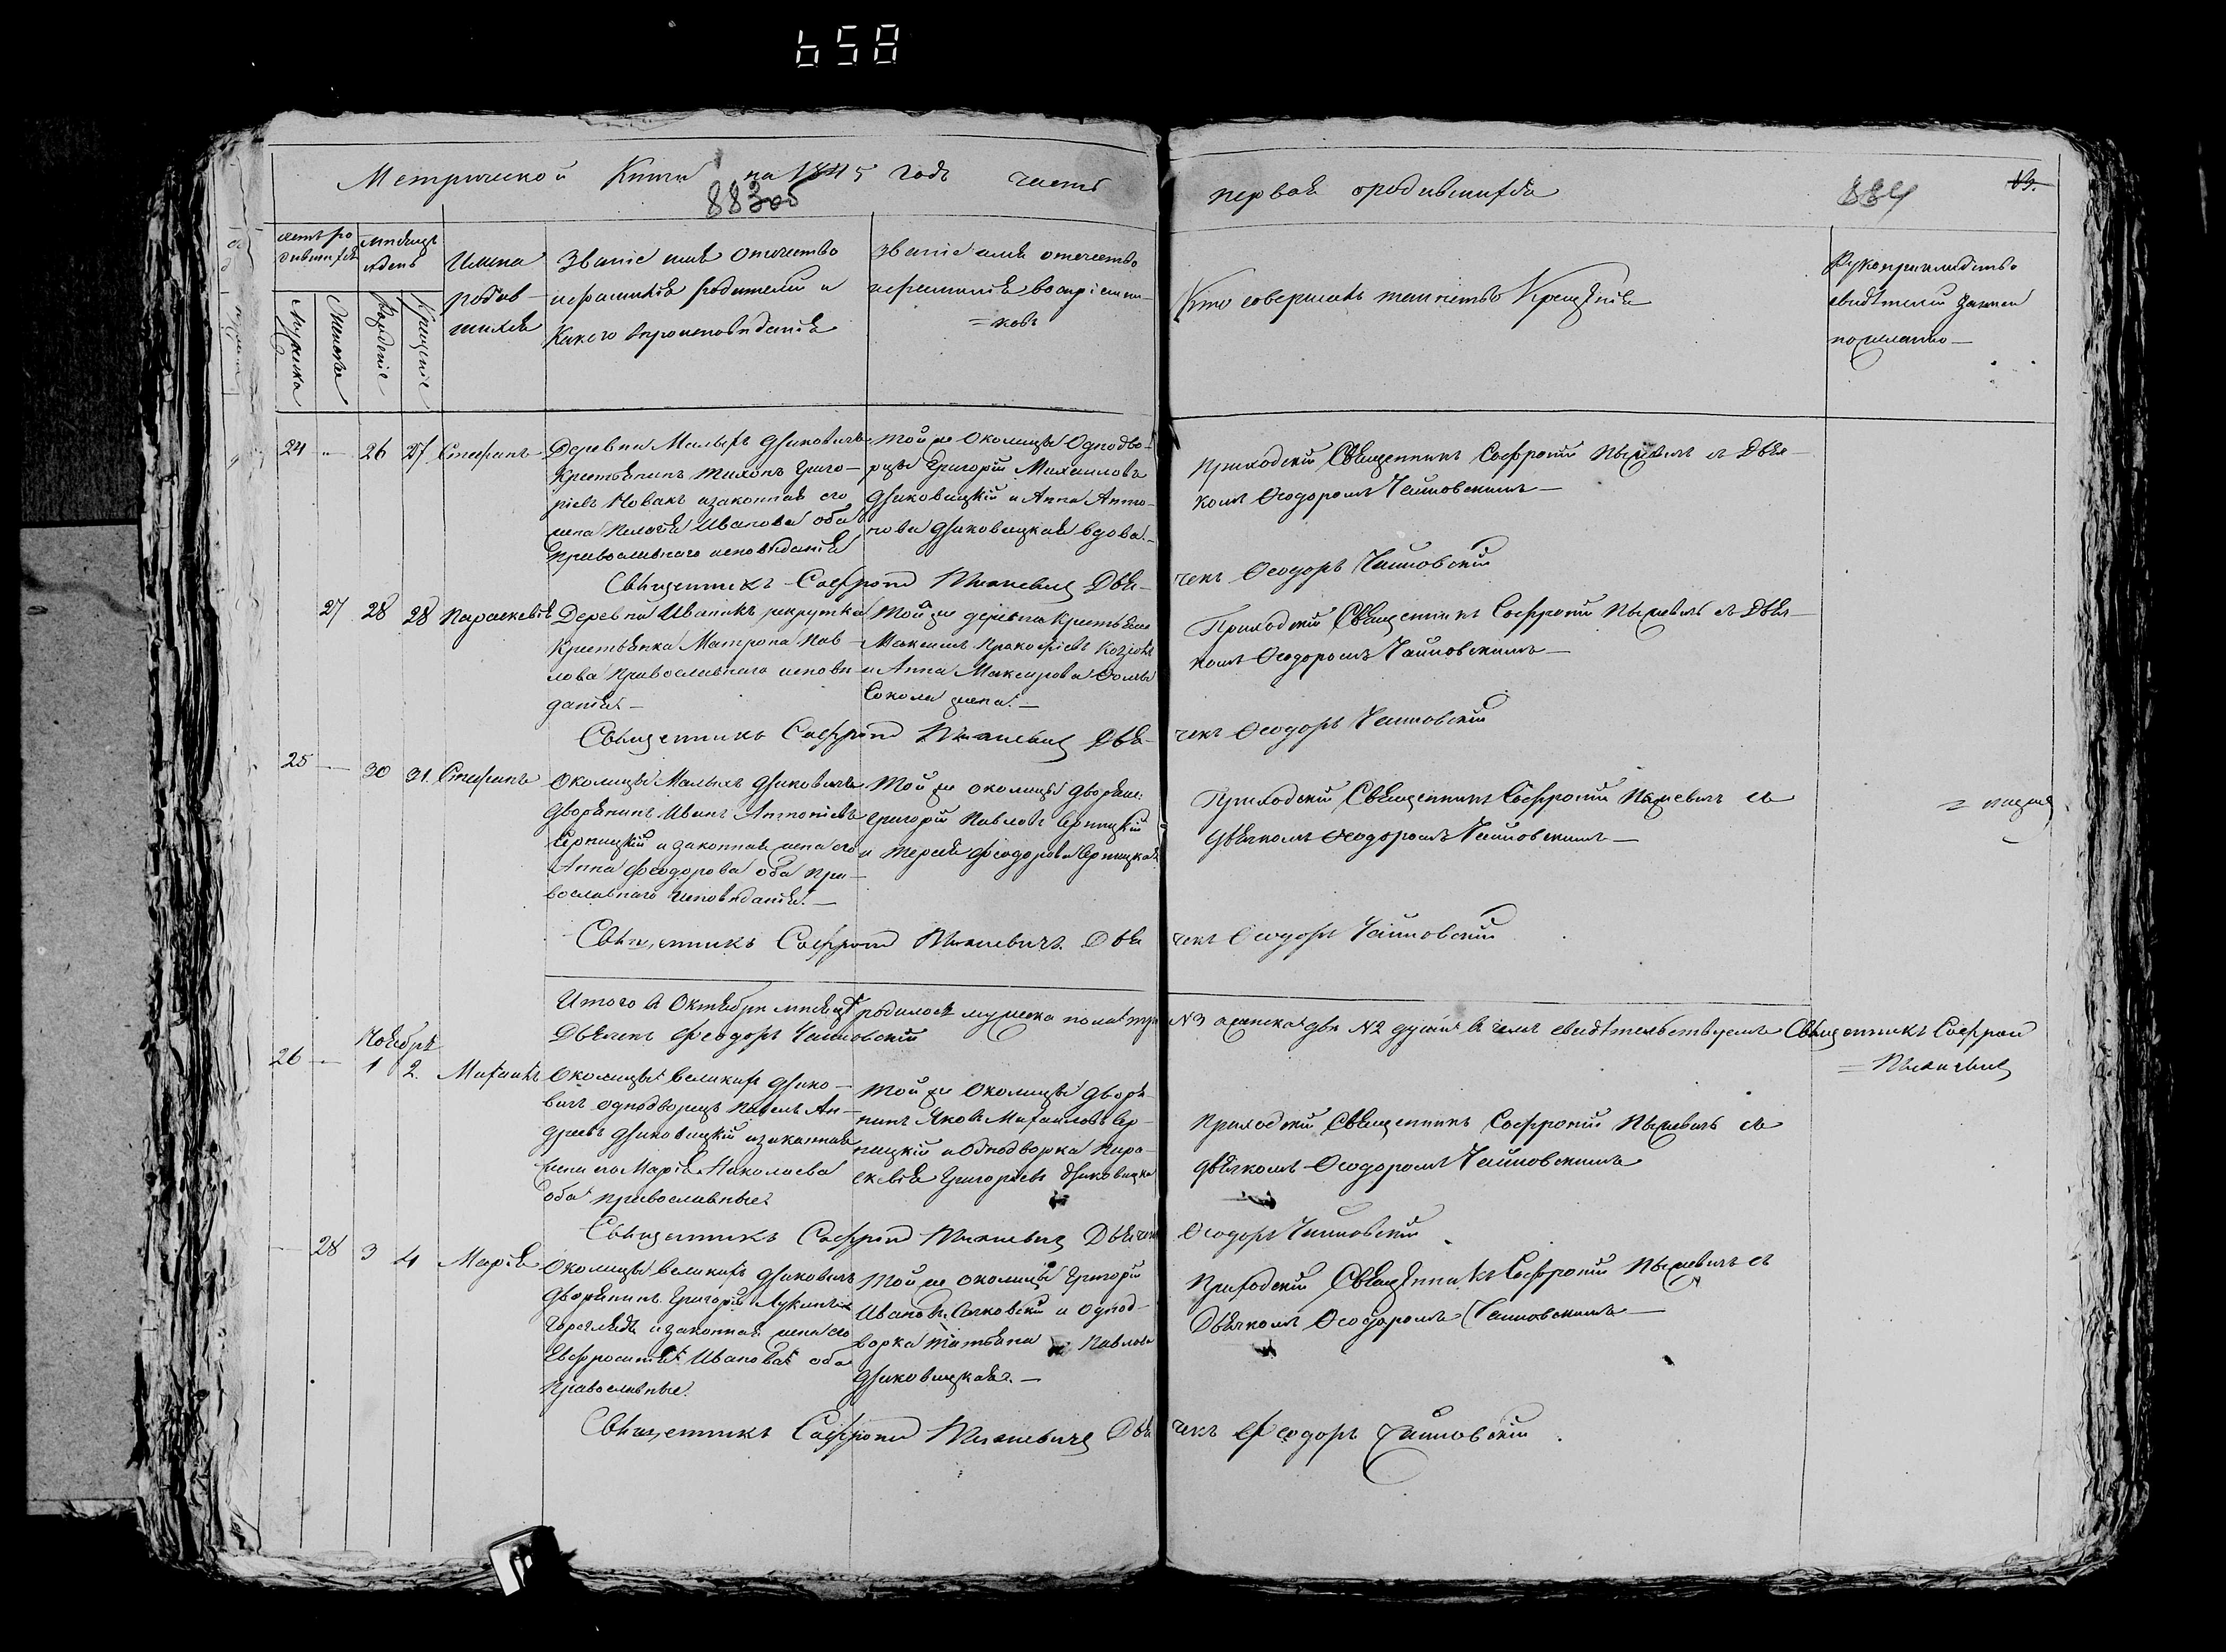 658
Метрической Книги на 1845 годъ часть
883 об
первая о родившихся
884
Счетъ ро
дившихся
Мужеска
Женска
Мѣсяцъ
и день
Рожденіе
Крещеніе
Имена
родив
шихся
Званіе имя отечество
и фамилія родителей и
какого вѣроисповѣданія
Званіе имя отечество
и фамилія воспріемни
=ковъ
Кто совершалъ таинство Крещенія
Рукоприкладство
свидѣтелей записи
по желанію
24 26 27 Стефанъ
Деревни Малыхъ Дзиковичъ
Крестьянинъ Тихонъ Григо-
ріевъ Новакъ и законная его
жена Пелагія Иванова оба
православнаго исповѣданія
Той же Околицы Однодво-
рцы Григорій Михаиловъ
Дзиковицкій и Анна Анто-
нова Дзиковицкая вдова.
Приходскій Священникъ Софроній Пыжевичъ съ Дья-
комъ Ѳеодоромъ Чайновскимъ
Священникъ Софроній Пыжевичъ Дья-
чекъ Ѳеодоръ Чайновскій
27 28 28 Параскевія
Деревни Иваникъ рекрутка
Крестьянка Матрона Пав-
лова Православнаго исповѣ-
данія
Той же деревни крестьяне
Максимъ Прокофіевъ
и Анна Максимова Фомы
Сокола жена.
Приходскій Священникъ Софроній Пыжевичъ съ Дья-
комъ Ѳеодоромъ Чайновскимъ
Священникъ Софроній Пыжевичъ Дья-
чекъ Ѳеодоръ Чайновскій
25 30 31. Стефанъ
Околицы Малыхъ Дзиковичъ
Дворянинъ Иванъ Антоніевъ
Серницкій и законная жена его
Анна Феодорова оба пра-
вославнаго исповѣданія.
Той же околицы дворяне
Григорій Павловъ Серницкій
и Феодорова Серницкая
Приходскій Священникъ Софроній Пыжевичъ съ
дьячкомъ Ѳеодоромъ Чайновскимъ
Священникъ Софроній Пыжевичъ Дья
чекъ Ѳеодоръ Чайновскій
Итого въ Октябрѣ мѣсяцѣ родилось мужеска пола три №3 а женска двѣ №2 души въ чемъ свидѣтельствуемъ Священникъ Софроній
= Пыжевичъ
Дьячекъ Феодоръ Чайновскій
Ноябрь
26 1 2. Михаилъ
Околицы Великихъ Дзико-
вичъ однодворецъ Павелъ Ан-
дреевъ Дзиковицкій и законная
жена его Марія Николаева
оба православные
Той же Околицы Дворя-
нинъ Яковъ Михаиловъ Сер-
ницкій и Однодворка Пара-
скевія Григоріева Дзиковицка
Приходскій Священникъ Софроній Пыжевичъ съ
дьячкомъ Ѳеодоромъ Чайновскимъ
Священникъ Софроній Пыжевичъ Дьячекъ
Ѳеодоръ Чайновскій
28 3 4 Марія
Околицы Великихъ Дзиковичъ
Дворянинъ Григорій
и законная жена его
Евфросинія Иванова оба
Православные.
Той же околицы Григорій
Ивановъ и однод-
ворка Татьяна Павлова
Дзиковицкая.
Приходскій Священникъ Софроній Пыжевичъ съ
Дьячкомъ Ѳеодоромъ Чайновскимъ
Священникъ Софроній Пыжевичъ Дья
чекъ Феодоръ Чайновскій